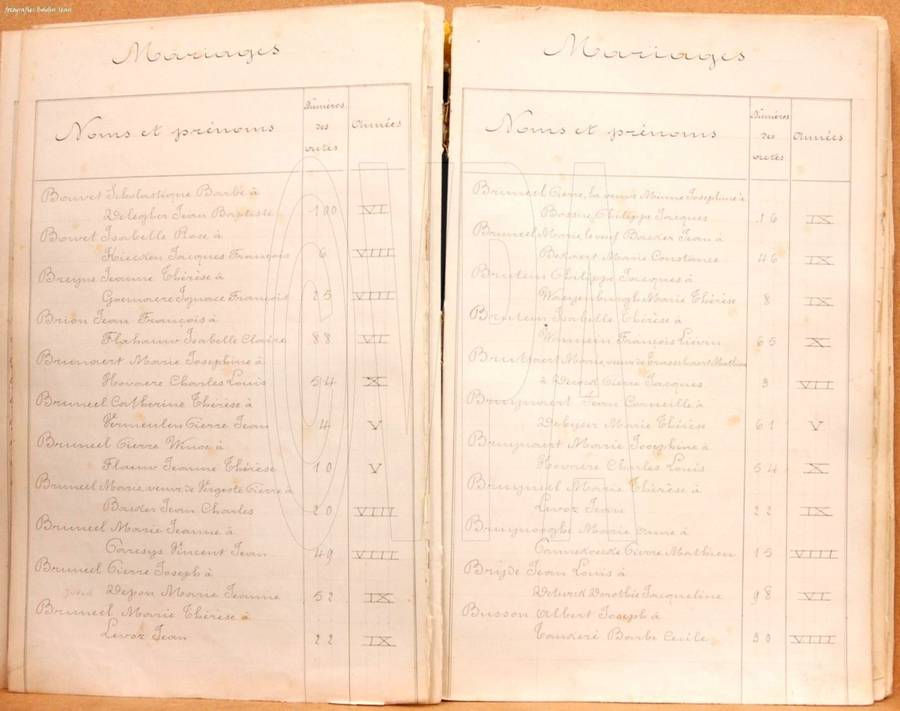 Mariages
Noms et prénoms Numéros des actes Années
Bouvet Scholastique Barbe à
Delegher Jean Baptiste 100 VI
Bouvet Isabelle Rose à
Kiecken Jacques François 6 VIII
Breyne Jeanne Thérèse à
Goemaere Ignace François 25 VIII
Brion Jean François à
Flahauw Isabelle Claire 88 VI
Brunaert Marie Josephine à
Hovaere Charles Louis 54 X
Bruneel Catherine Thérèse à
Vermeulen Pierre Jean 4 V
Bruneel Pierre Winoc à
Flauw Jeanne Thérèse 10 V
Bruneel Marie, veuve de Vergote Pierre à
Backer Jean Charles 20 VIII
Bruneel Marie Jeanne à
Caresys Vincent Jean 49 VIII
Bruneel Pierre Joseph à
Depon Marie Jeanne 52 IX
Bruneel Marie Thérèse à
Levoz Jean 22 IX
Mariages
Noms et prénoms Numéros des actes Années
Bruneel Pierre, la veuve Minne Josephine à
Bossu Philippe Jacques 16 IX
Bruneel Marie, le veuf Backer Jean à
Marie Constance 46 IX
Brutein Philippe Jacques à
Waeyenburghe Marie Thérèse 8 IX
Brutein Isabelle Thérèse à
François Lievin 65 X
Marie, veuve de Mathieu
à Pierre Jacques 3 VII
Bruynaert Jean Corneille à
Debyser Marie Thérèse 61 V
Bruynaert Marie Josephine à
Hovaere Charles Louis 54 X
Bruyneel Marie Thérèse à
Levoz Jean 22 IX
Bruynooghe Marie Anne à
Cannekoecke Pierre Mathieu 15 VIII
Bryde Jean Louis à
Deturck Dorothie Jacqueline 98 VI
Busson Albert Joseph à
Tanderé Barbe Cecile 30 VIII